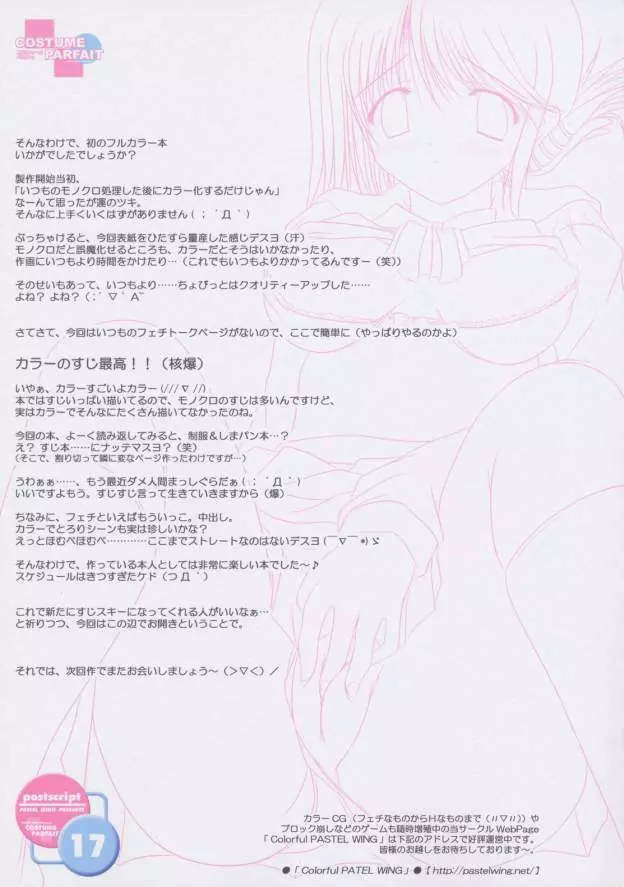 COSTUME
PARFAIT
そんなわけで、初のフルカラー本
いかがでしたでしょうか？
製作開始当初、
「いつものモノクロ処理した後にカラー化するだけじゃん」
なーんて思ったが運のツキ。
そんなに上手くいくはずがありません(；゜Д゜)
ぶっちゃけると、今回表紙をひたすら量産した感じデスヨ（汗）
モノクロだと誤魔化せるところも、カラーだとそうはいかなかったり、
作画にいつもより時間をかけたり…（これでもいつもよりかかってるんですー（笑））
そのせいもあって、いつもより……ちょびっとはクオリティーアップした……
よね？よね？(；´∇｀A¨
さてさて、今回はいつものフェチトークページがないので、ここで簡単に（やっぱりやるのかよ）
カラーのすじ最高！！（核爆）
いやぁ、カラーすごいよカラー(///∇//)
本ではすじいっぱい描いてるので、モノクロのすじは多いんですけど、
実はカラーでそんなにたくさん描いてなかったのね。
今回の本、よーく読み返してみると、制服＆しまパン本…？
え？すじ本……にナッテマスヨ？（笑）
（そこで、割り切って隣に変なページ作ったわけですが…）
うわぁぁ……、もう最近ダメ人間まっしぐらだぁ(；゜Д゜)
いいですよもう。すじすじ言って生きていきますから（爆）
ちなみに、フェチといえばもういっこ。中出し。
カラーでとろりシーンも実は珍しいかな？
えっとほむぺほむぺ…………ここまでストレートなのはないデスヨ(￣∇￣*)ゞ
そんなわけで、作っている本人としては非常に楽しい本でした～♪
スケジュールはきつすぎたケド（つД｀）
これで新たにすじスキーになってくれる人がいいなぁ…
と祈りつつ、今回はこの辺でお開きということで。
それでは、次回作でまたお会いしましょう～(＞▽＜)／
postscript
PASTEL WING PRESENTS
COSTUME
PARFAIT
17
カラーCG（フェチなものからHなものまで（〃▽〃））や
ブロック崩しなどのゲームも随時増殖中の当サークルWebPage
「Colorful PASTEL WING」は下記のアドレスで好評運営中です。
皆様のお越しをお待ちしております～。
●「Colorful PATEL WING」●【http://pastelwing.net/】